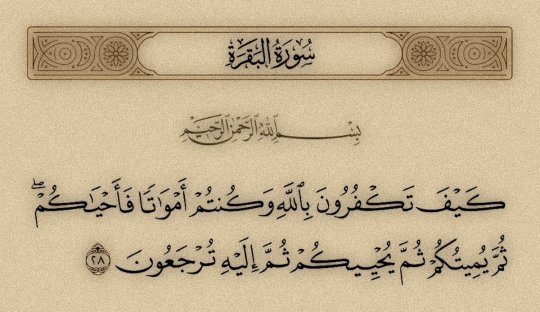 سُورَةُ البَقَرَةِ
بِسْمِ اللَّهِ الرَّحْمَٰنِ الرَّحِيمِ
كَيْفَ تَكْفُرُونَ بِٱللَّهِ وَكُنتُمْ أَمْوَٰتًا فَأَحْيَـٰكُمْ ۖ
ثُمَّ يُمِيتُكُمْ ثُمَّ يُحْيِيكُمْ ثُمَّ إِلَيْهِ تُرْجَعُونَ ٢٨